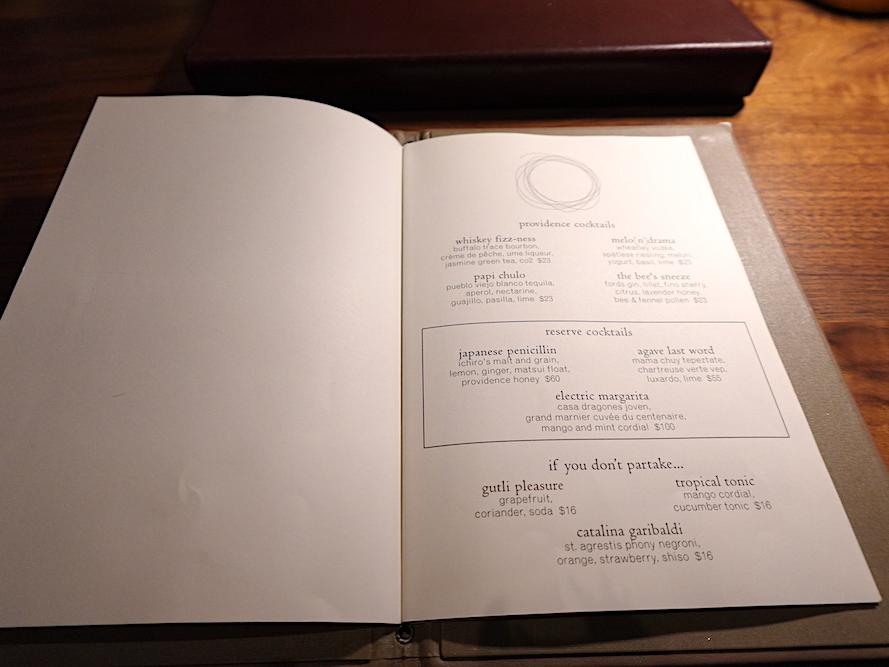 providence cocktails
whiskey fizz-ness
buffalo trace bourbon,
crème de pêche, ume liqueur,
jasmine green tea, co2 $23
melo(n)drama
wheatley vodka,
spätlese riesling, melon,
yogurt, basil, lime $23
papi chulo
pueblo viejo blanco tequila,
aperol, nectarine,
guajillo, pasilla, lime $23
the bee's sneeze
fords gin, lillet, fino sherry,
citrus, lavender honey,
bee & fennel pollen $23
reserve cocktails
japanese penicillin
ichiro's malt and grain,
lemon, ginger, matsui float,
providence honey $60
agave last word
mama chuy tepeztate,
chartreuse verte vep,
luxardo, lime $55
electric margarita
casa dragones joven,
grand marnier cuvée du centenaire,
mango and mint cordial $100
if you don't partake...
gutli pleasure
grapefruit,
coriander, soda $16
tropical tonic
mango cordial,
cucumber tonic $16
catalina garibaldi
st. agrestis phony negroni,
orange, strawberry, shiso $16